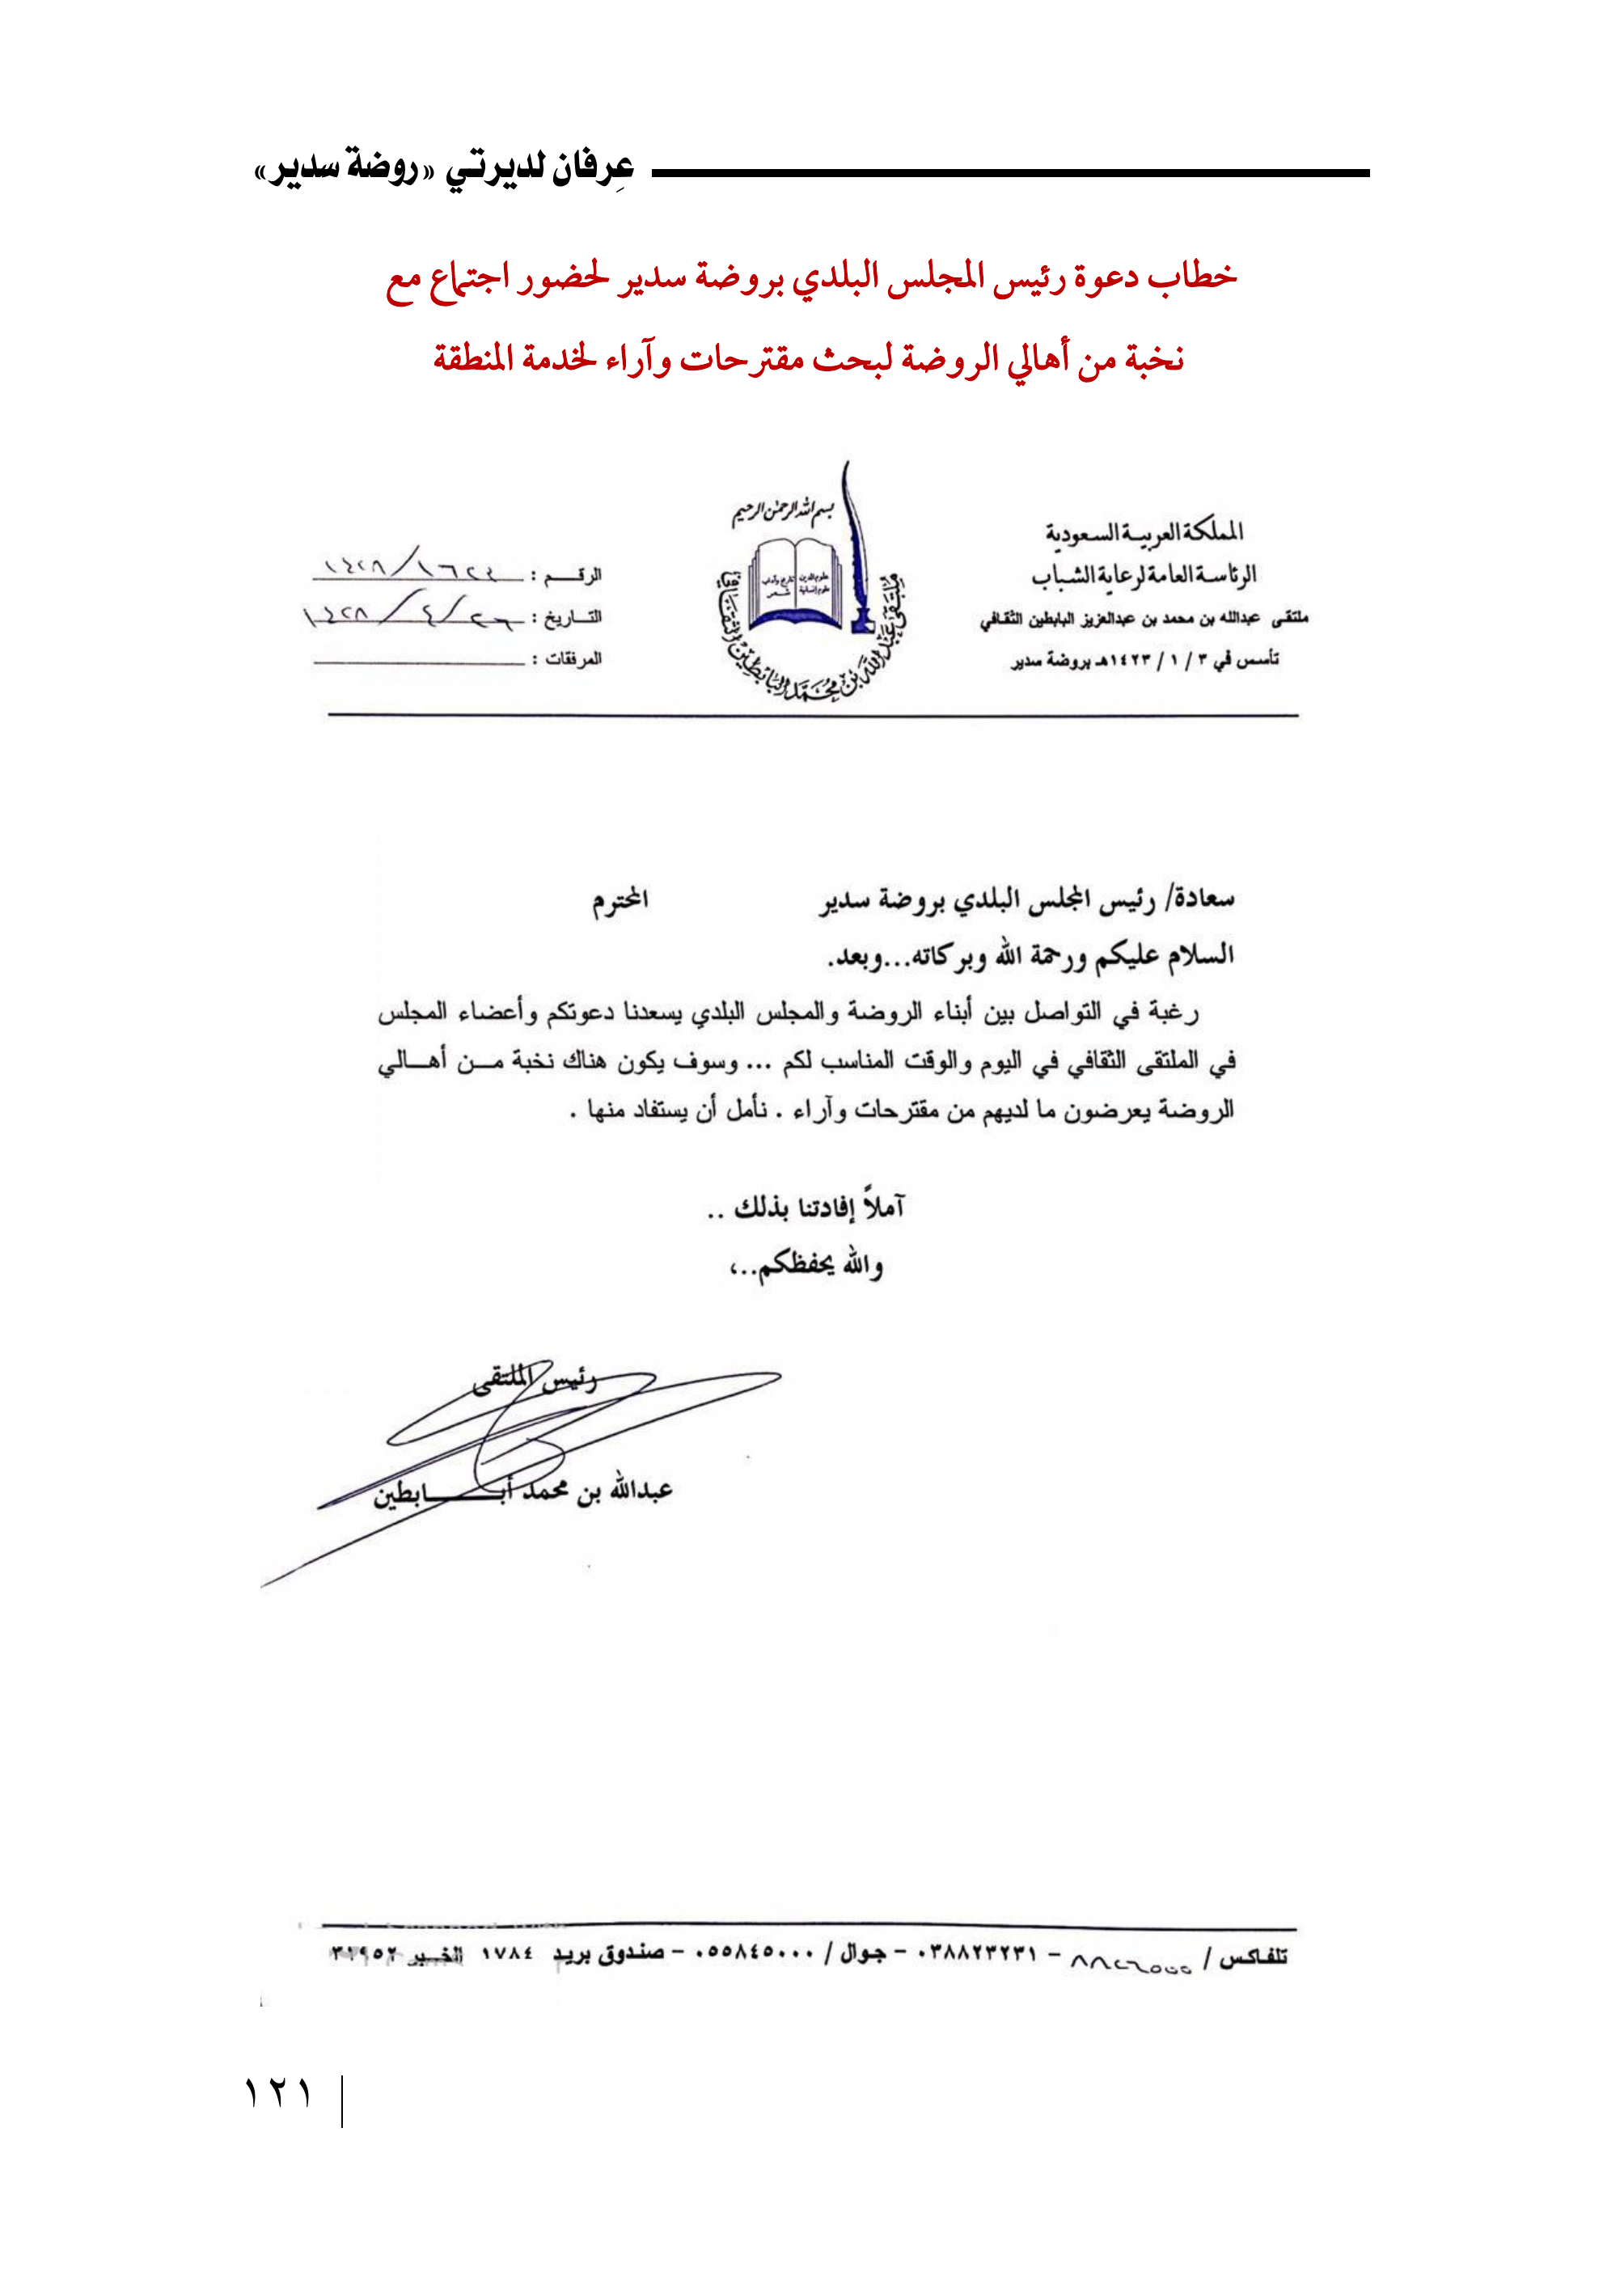 عِرفان لديرتي «روضة سدير»
خطاب دعوة رئيس المجلس البلدي بروضة سدير لحضور اجتماع مع
نخبة من أهالي الروضة لبحث مقترحات وآراء لخدمة المنطقة
المملكة العربية السعودية
الرئاسة العامة لرعاية الشباب
ملتقى عبدالله بن محمد بن عبدالعزيز البابطين الثقافي
تأسس في ٣ / ١ / ١٤٢٣هـ بروضة سدير
بسم الله الرحمن الرحيم
علوم الدين تاريخ وآداب
علوم إنسانية شعر
ملتقى عبدالله بن محمد البابطين الثقافي
الرقم : ١٤٢٨/١٦٢٤
التاريخ : ١٤٢٨/٤/٢٦
المرفقات :
سعادة/ رئيس المجلس البلدي بروضة سدير المحترم
السلام عليكم ورحمة الله وبركاته...وبعد.
رغبة في التواصل بين أبناء الروضة والمجلس البلدي يسعدنا دعوتكم وأعضاء المجلس
في الملتقى الثقافي في اليوم والوقت المناسب لكم ... وسوف يكون هناك نخبة من أهالي
الروضة يعرضون ما لديهم من مقترحات وآراء . نأمل أن يستفاد منها .
آملاً إفادتنا بذلك ..
والله يحفظكم..،
رئيس الملتقى
عبدالله بن محمد أبابطين
تلفاكس / ٨٨٢٦٥٥٥ – ٠٣٨٨٢٣٢٣١ – جوال / ٠٥٥٨٤٥٠٠٠ – صندوق بريد ١٧٨٤ الخبر ٣١٩٥٢
١٢١